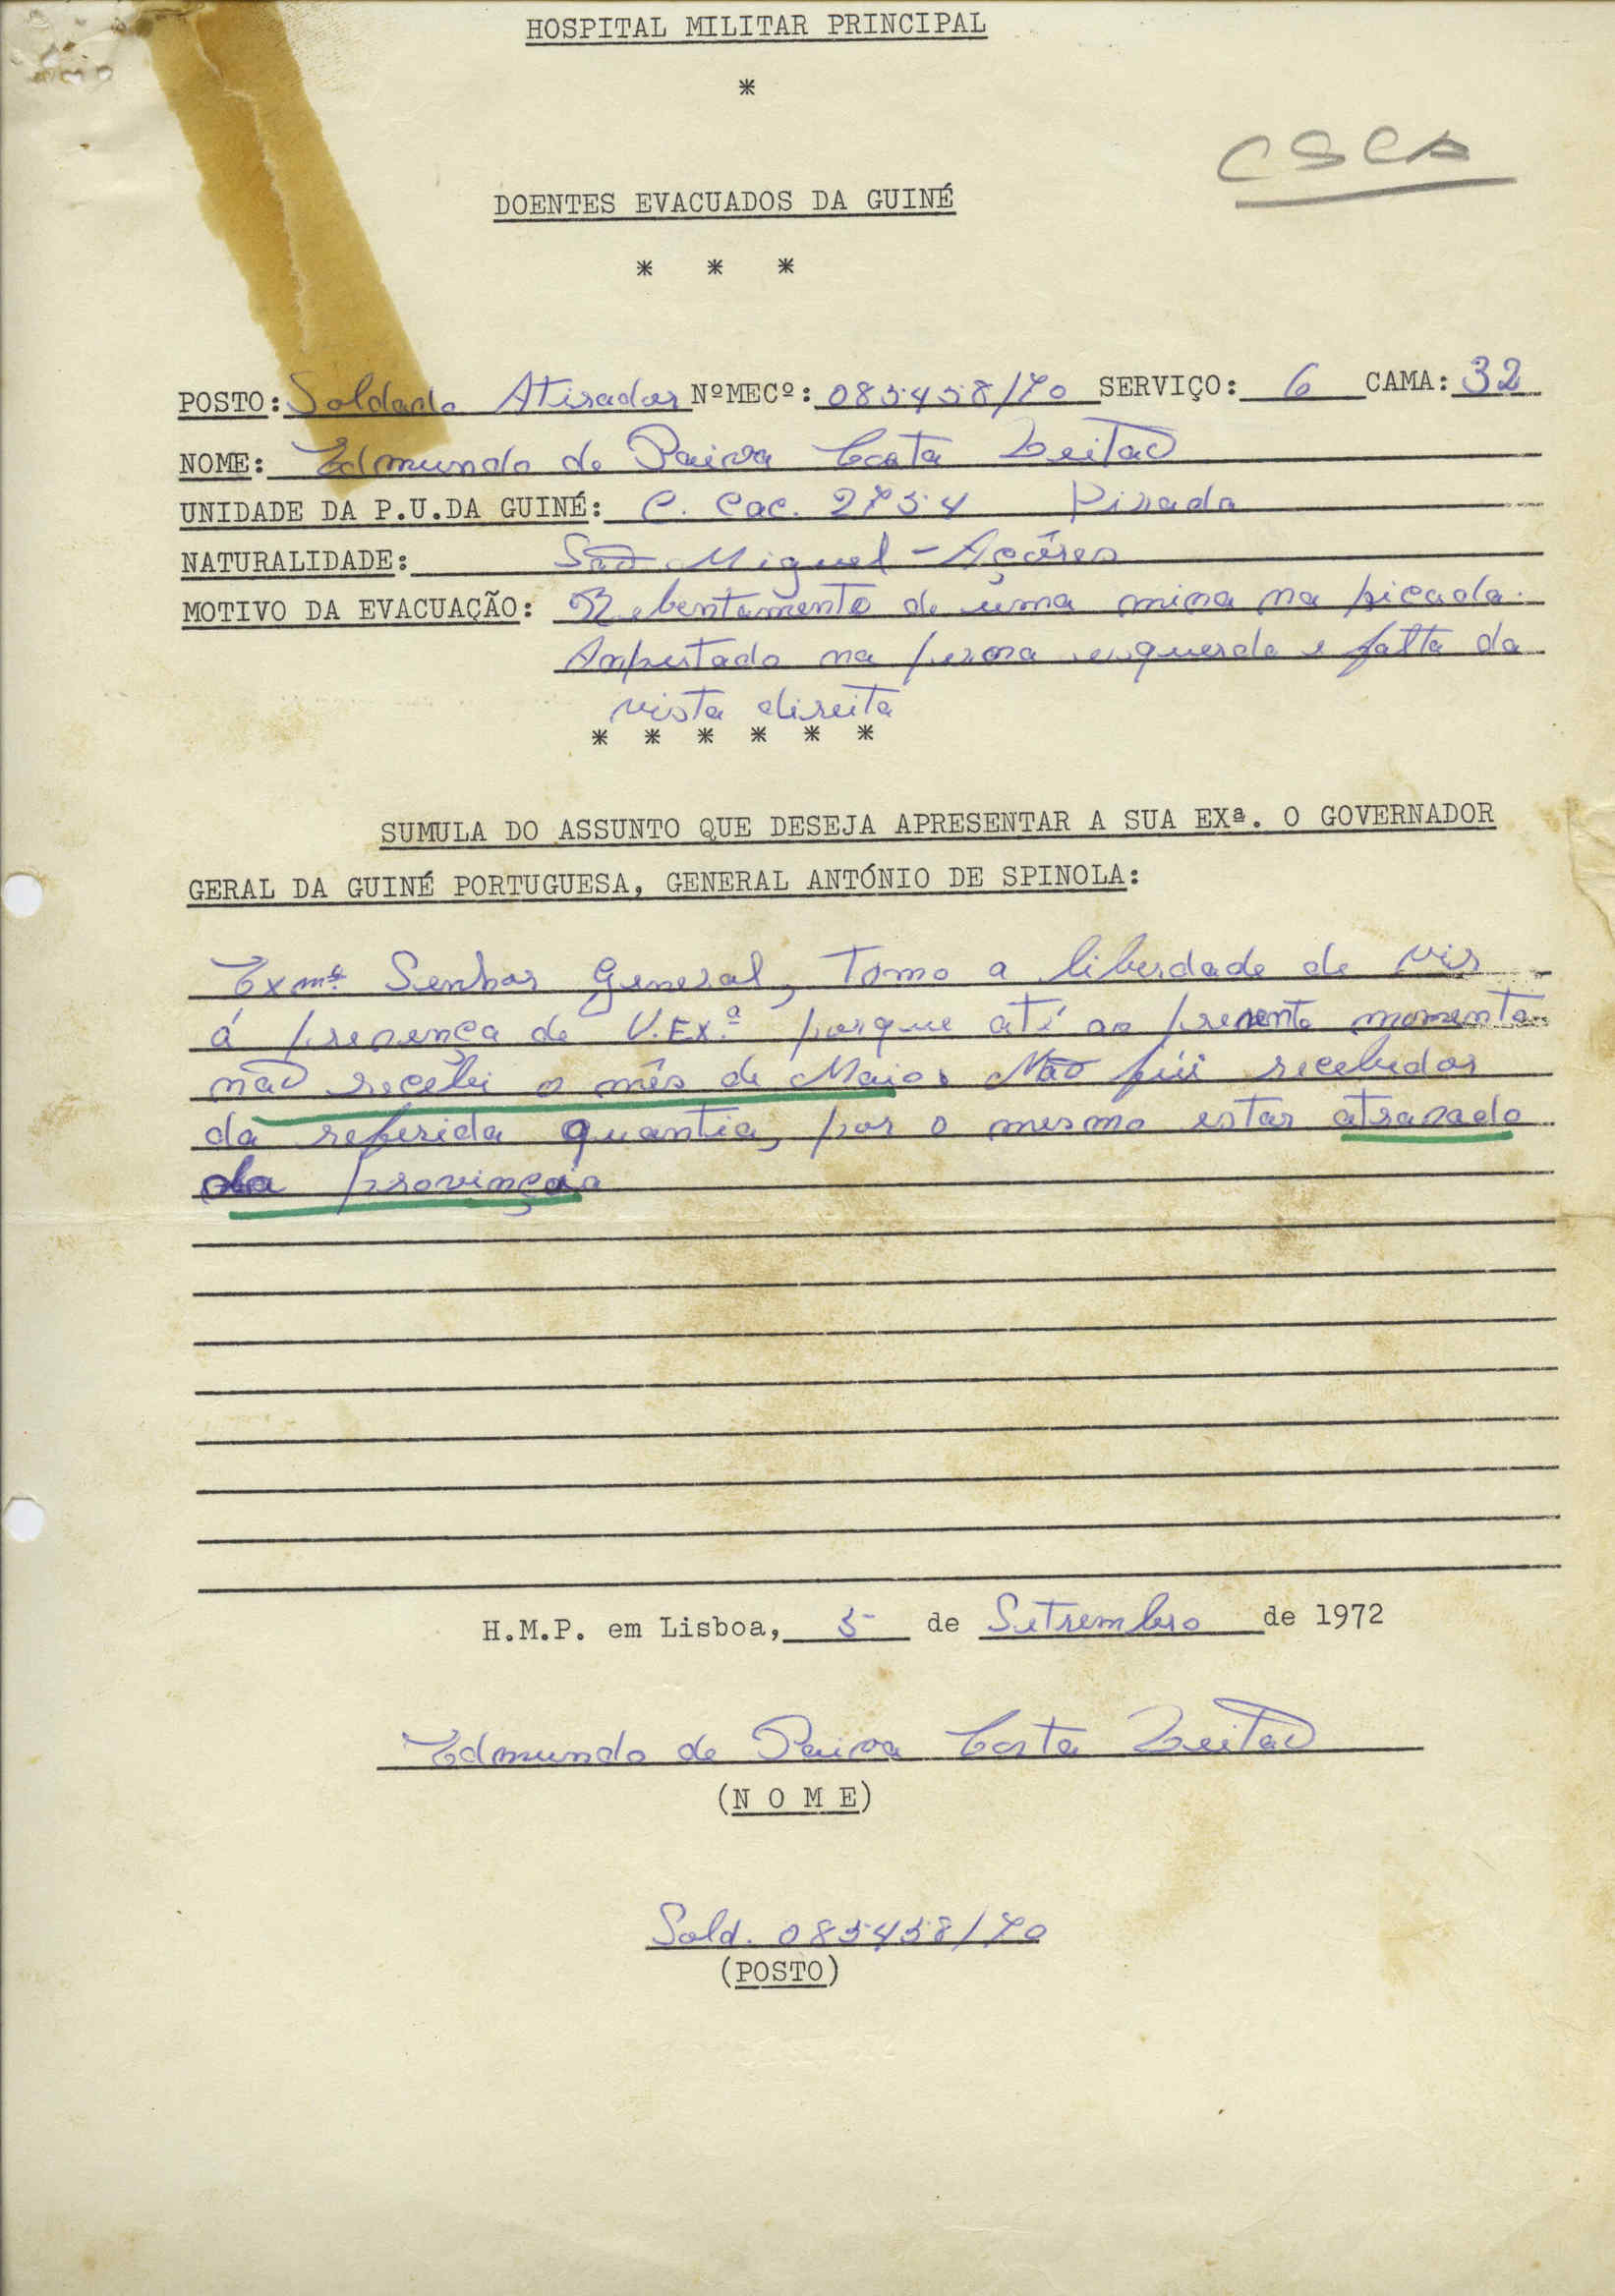 HOSPITAL MILITAR PRINCIPAL
*
CSCA
DOENTES EVACUADOS DA GUINÉ
* * *
POSTO: Soldado Atirador NºMECº: 085458/70 SERVIÇO: 6 CAMA: 32
NOME: Edmundo de Paiva Costa Leitão
UNIDADE DA P.U.DA GUINÉ: C. Cac. 2754 Pirada
NATURALIDADE: São Miguel - Açôres
MOTIVO DA EVACUAÇÃO: Rebentamento de uma mina na picada.
Anputado na perna esquerda e falta da
vista direita
* * * * * *
SUMULA DO ASSUNTO QUE DESEJA APRESENTAR A SUA EXª. O GOVERNADOR
GERAL DA GUINÉ PORTUGUESA, GENERAL ANTÓNIO DE SPINOLA:
Exmº. Senhor General, Tomo a liberdade de vir
á presença de V.Ex.ª porque até ao presente momento
não recebi o mês de Maio. Não fui recebedor
da referida quantia, por o mesmo estar atrazado
da provinçaia
H.M.P. em Lisboa, 5 de Setrembro de 1972
Edmundo de Paiva Costa Leitão
(N O M E)
Sold. 085458/70
(POSTO)